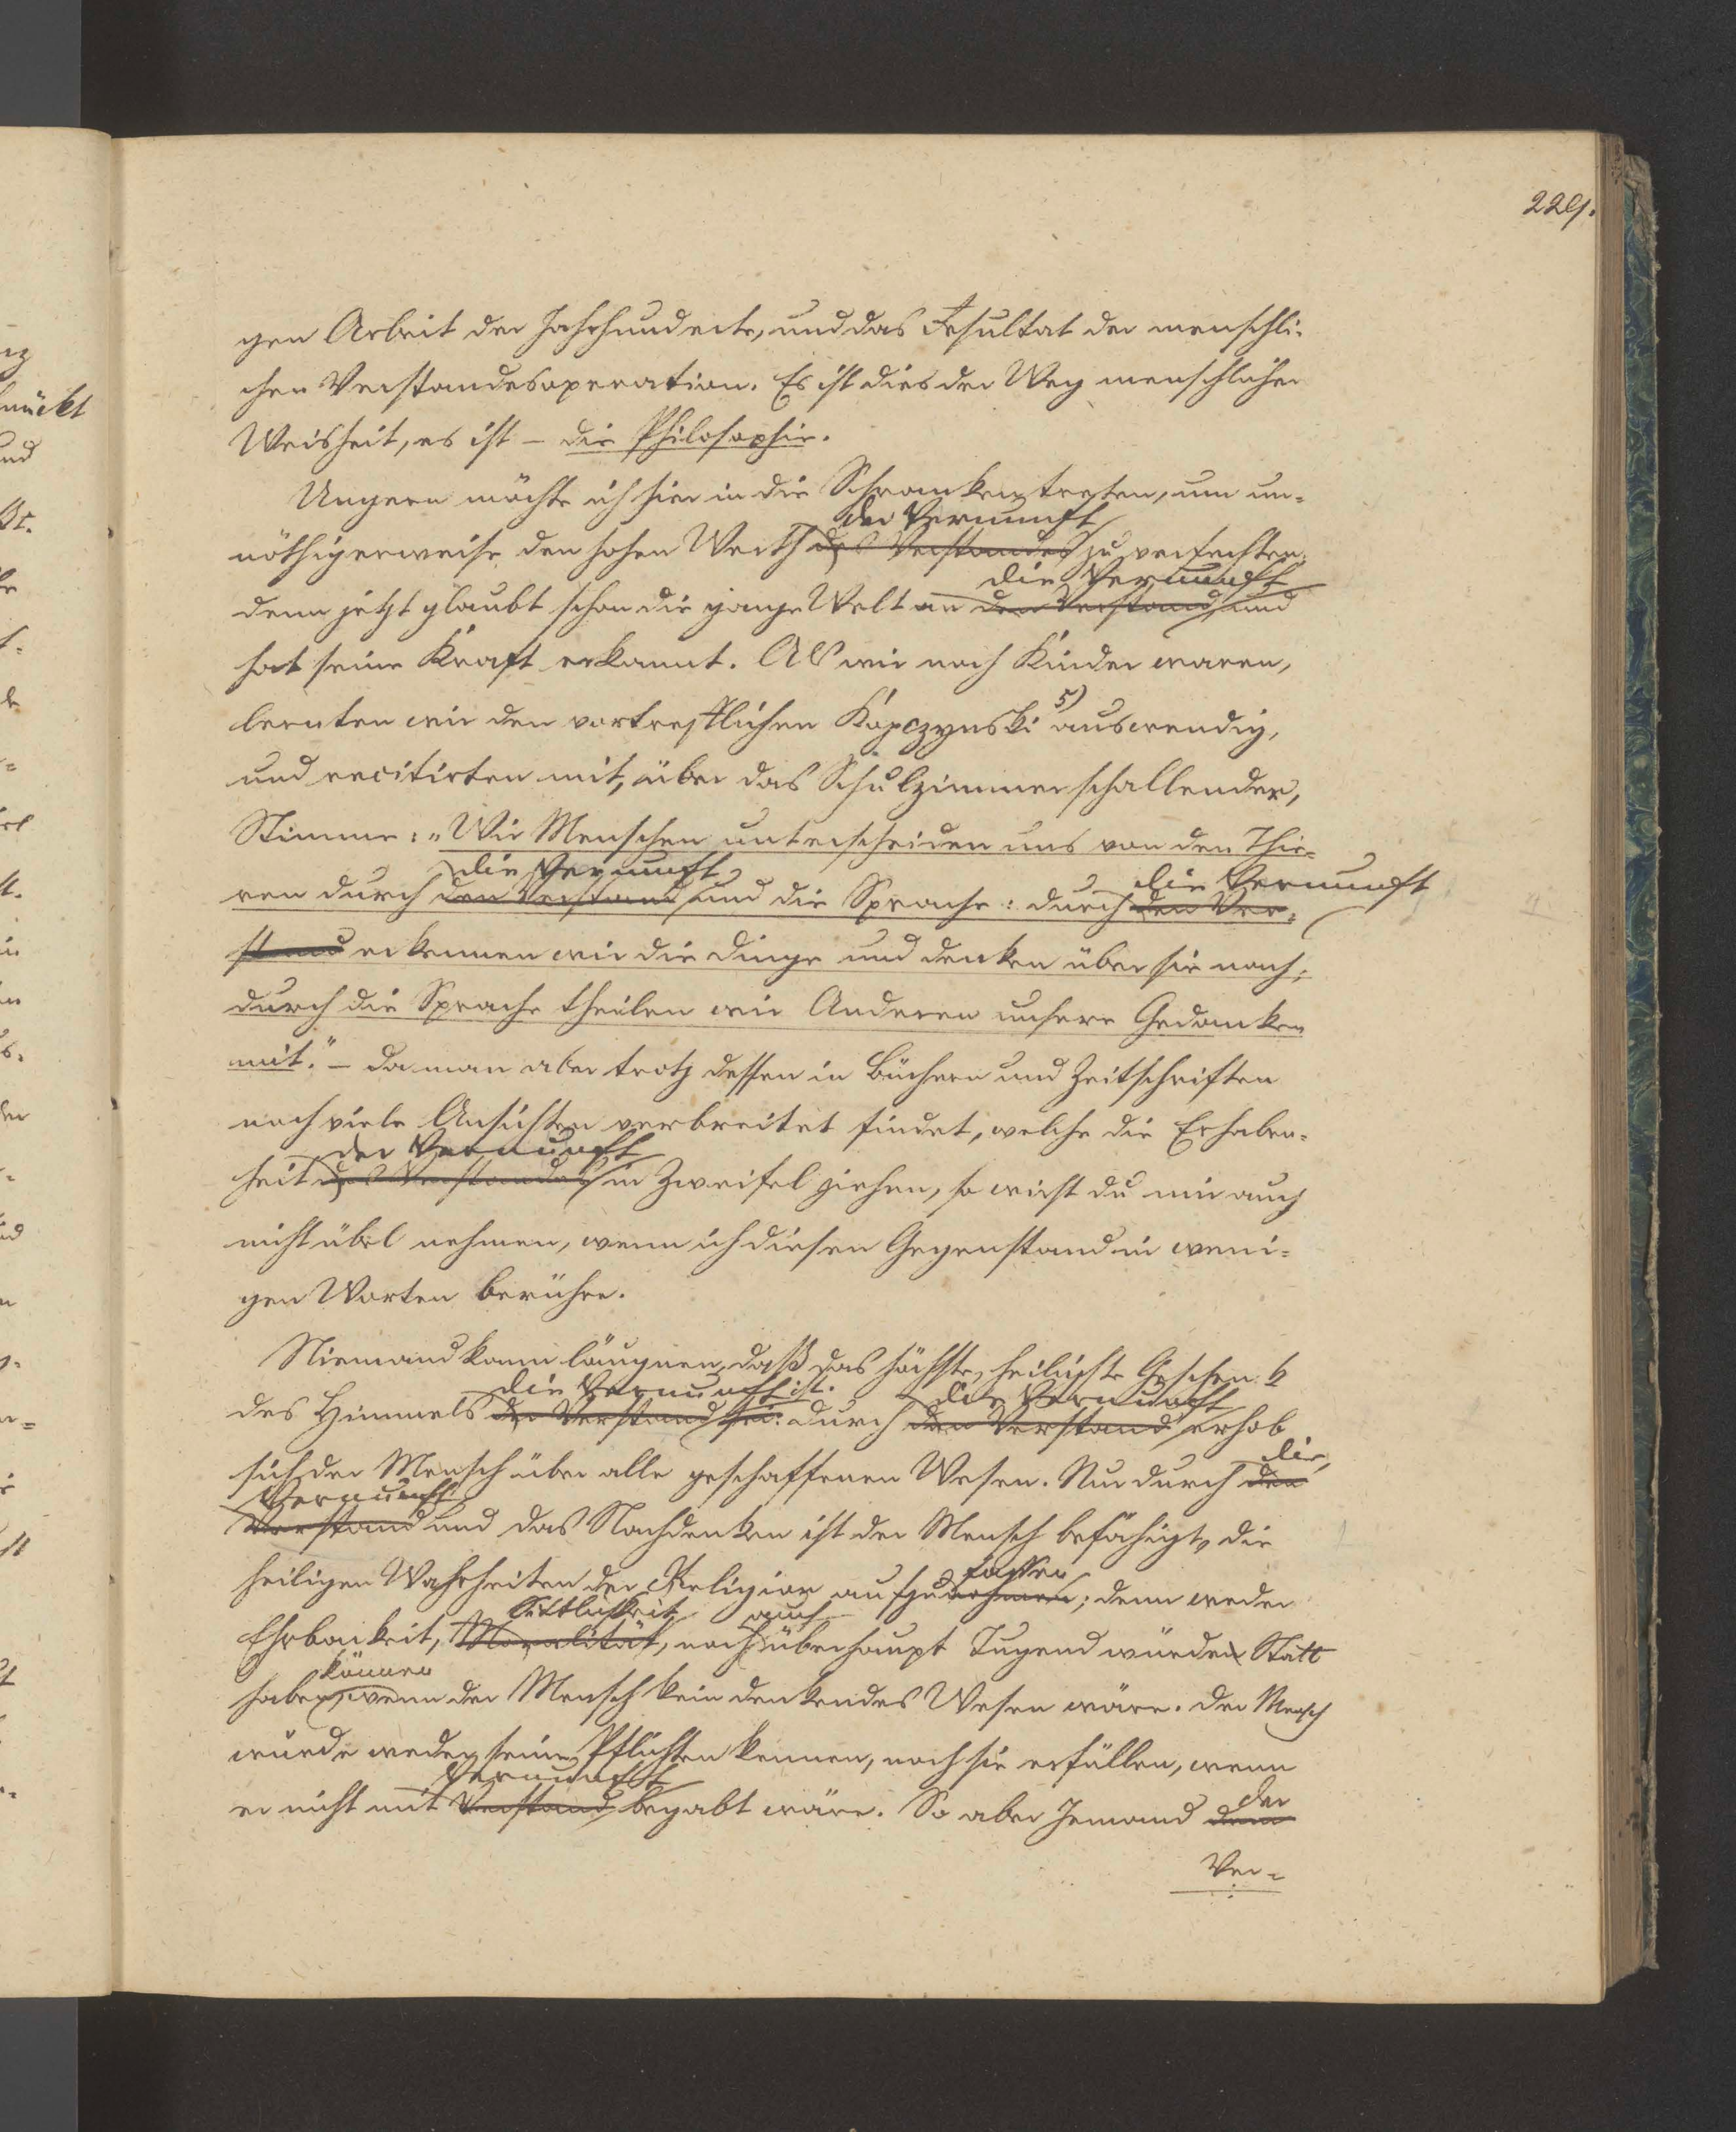 229.
gen Arbeit der Jahrhunderte, und das Resultat der menschli-
chen Verstandesoperation. Es ist dies der Weg menschlicher
Weisheit, es ist – die Philosophie.
Ungern möchte ich hier in die Schranken treten, um un-
der Vernunft
nöthigerweise den hohen Werth des Verstandes zu verfechten,
die Vernunft
denn jetzt glaubt schon die ganze Welt an den Verstand und
hat seine Kraft erkannt. Als wir noch Kinder waren,
lernten wir den vortrefflichen Kopczynski 5) auswendig,
und recitirten mit, über das Schulzimmer schallender,
Stimme: „Wir Menschen unterscheiden uns von den Thie-
die Vernunft die Vernunft
ren durch den Verstand und die Sprache: durch den Ver-
stand erkennen wir die Dinge und denken über sie nach;
durch die Sprache theilen wir Anderen unsere Gedanken
mit." – Da man aber trotz dessen in Büchern und Zeitschriften
noch viele Ansichten verbreitet findet, welche die Erhaben-
der Vernunft
heit des Verstandes in Zweifel ziehen, so wirst du mir auch
nicht übel nehmen, wenn ich diesen Gegenstand in weni-
gen Worten berühre.
Niemand kann läugnen, daß das höchste, heiligste Geschenk
die Vernunft ist. die Vernunft
des Himmels der Verstand sei. Durch den Verstand erhob
sich der Mensch über alle geschaffenen Wesen. Nur durch den
die
Vernunft
Verstand und das Nachdenken ist der Mensch befähigt, die
fassen
heiligen Wahrheiten der Religion aufzunehmen; denn weder
Sittlichkeit auch
Ehrbarkeit, Moralität, noch überhaupt Tugend würden Statt
können
haben, wenn der Mensch kein denkendes Wesen wäre. Der Mensch
würde weder seine Pflichten kennen, noch sie erfüllen, wenn
Vernunft der
er nicht mit Verstand begabt wäre. So aber Jemand dem
Ver-